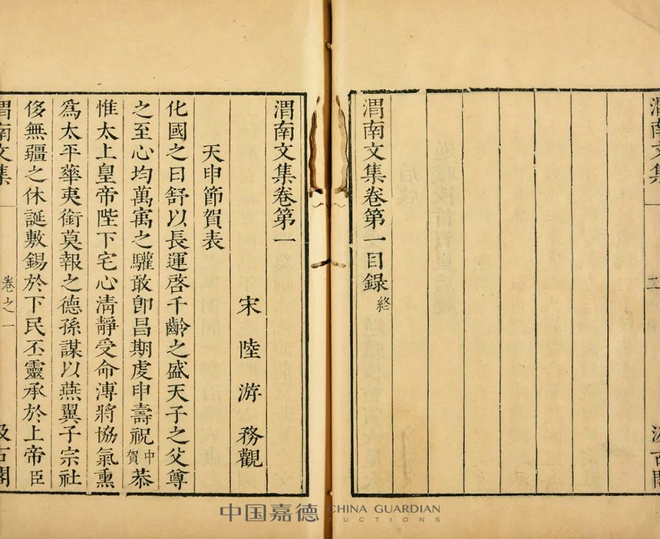 渭南文集
二
汲古閣
渭南文集卷第一目録終
渭南文集卷第一
宋 陸游 務觀
天申節賀表
化國之日舒以長運啓千齡之盛天子之父尊
之至心均萬寓之驩敢卽昌期虔申壽祝中賀恭
惟太上皇帝陛下宅心清靜受命溥將協氣熏
爲太平華夷銜莫報之德孫謀以燕翼子宗社
侈無疆之休誕敷錫於下民丕靈承於上帝臣
渭南文集
卷之一
汲古閣
中国嘉德 CHINA GUARDIAN
AUCTIONS